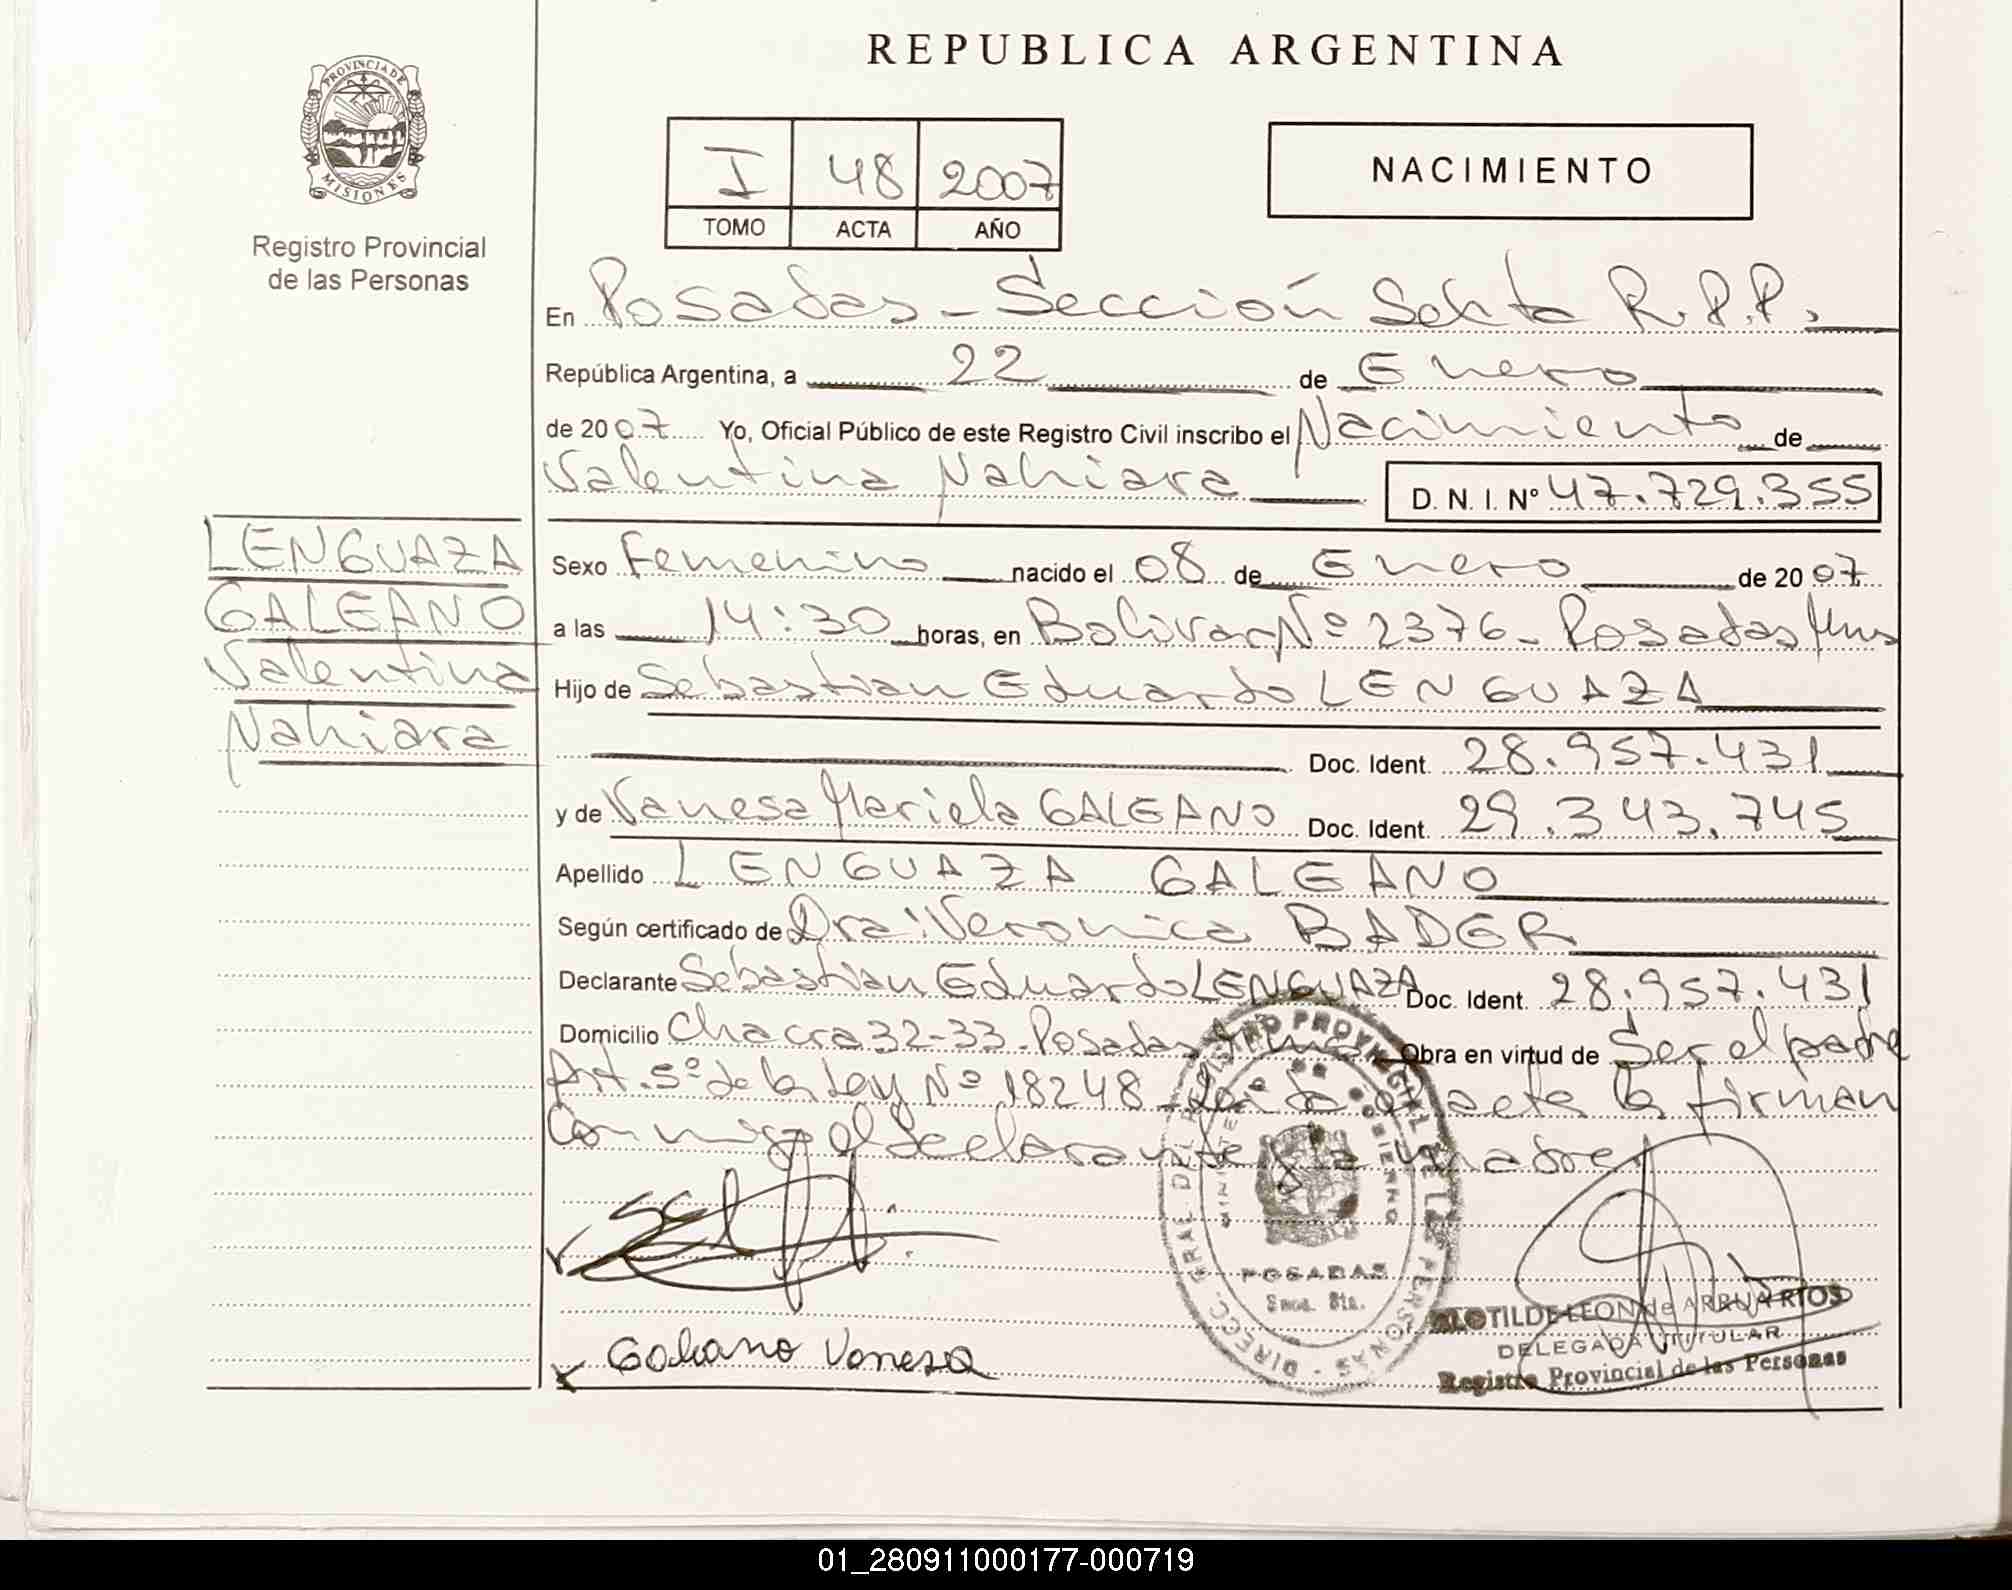 REPUBLICA ARGENTINA
PROVINCIA DE
MISIONES
Registro Provincial
de las Personas
I 48 2007
TOMO ACTA AÑO
NACIMIENTO
En Posadas - Sección Sexta R.P.P.
República Argentina, a 22 de Enero
de 2007 Yo, Oficial Público de este Registro Civil inscribo el Nacimiento de
Valentina Nahiara D. N. I. Nº 47.729.355
LENGUAZA
GALEANO
Valentina
Nahiara
Sexo Femenino nacido el 08 de Enero de 2007
a las 14:30 horas, en Bolivar Nº 2376 - Posadas Mnes
Hijo de Sebastian Eduardo LENGUAZA
Doc. Ident. 28.957.431
y de Vanesa Mariela GALEANO Doc. Ident. 29.343.745
Apellido LENGUAZA GALEANO
Según certificado de Dra: Veronica BADER
Declarante Sebastian Eduardo LENGUAZA Doc. Ident. 28.957.431
Domicilio Chacra 32-33. Posadas Obra en virtud de Ser el padre
Art. 5º de la Ley Nº 18248 - Leida el acta la firman
Conmigo el declarante y la madre
DIRECC. GRAL. DEL REGISTRO PROVINCIAL DE LAS PERSONAS
MINISTERIO DE GOBIERNO
POSADAS
Secc. 6ta.
Galeano Vanesa
CLOTILDE LEON de ARRUA RIOS
DELEGADA TITULAR
Registro Provincial de las Personas
01_280911000177-000719